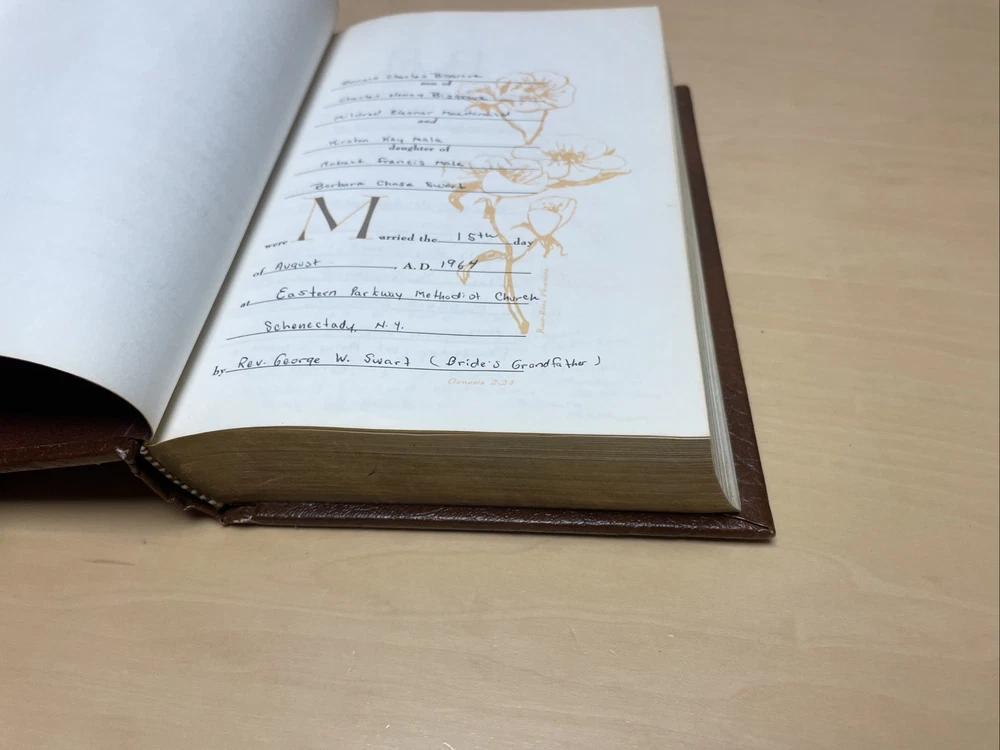 Charles Bisgrove
son of
Charles Henry Bisgrove
Mildred Eleanor
and
Kristen Kay Male
daughter of
Robert Francis Male
Barbara Chase Swart
were Married the 15th day
of August, A.D. 1964
at Eastern Parkway Methodist Church
Schenectady, N.Y.
by Rev. George W. Swart (Bride's Grandfather)
Genesis 2:24